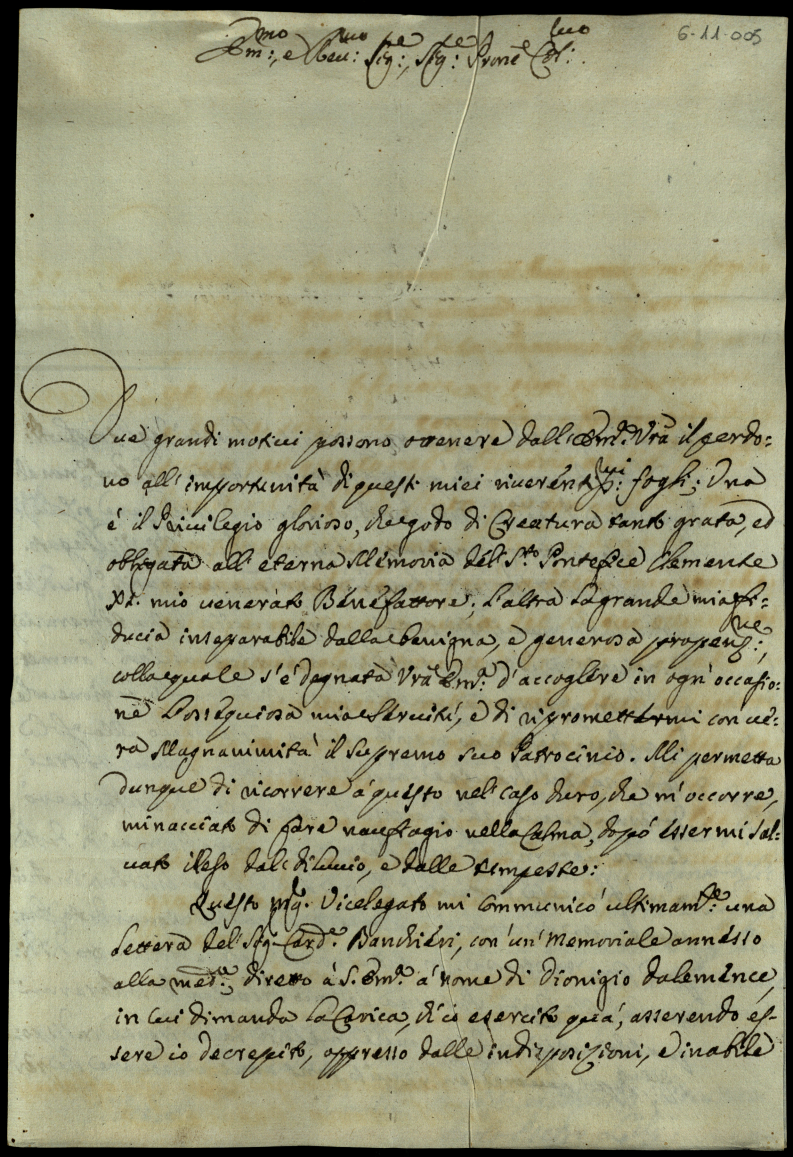 6-11-005
Em:mo, e Rev:mo Sig:re, Sig:re Prone Col:mo
Due grandi motivi possono ottenere dall'Em:za Vrã il perdo=
no all'importunità di questi miei riverentiss:mi fogli; Una
é il Privilegio glorioso, che godo di Creatura tanto grata, ed
obbligata all'eterna Memoria del S:to Pontefice Clemente
XI. mio venerato Benefattore; L'altra La grande mia fi=
ducia inseparabile dalla benigna, e generosa propens:ne,
colla quale s'é degnata Vrã Em:za d'accogliere in ogn'occasio=
ne L'ossequiosa mia Servitù, e di ripromettermi con ve=
ra Magnanimità il Supremo Suo Patrocinio. Mi permetta
dunque di ricorrere à questo nel caso duro, che m'occorre,
minacciato di fare naufragio nella Calma, dopò essermi sal=
vato illeso dal diluvio, e dalle tempeste:
Questo Mg.r Vicelegato mi communicò ultimam:te una
Lettera del Sig:r Card:e Banchieri, con un' Memoriale annesso
alla med:ma, diretto à S. Em:za à nome di Dionigio Dalemence,
in cui dimanda La Carica, ch'io esercito quà, asserendo es=
sere io decrepito, oppresso dalle indisposizioni, e inabile